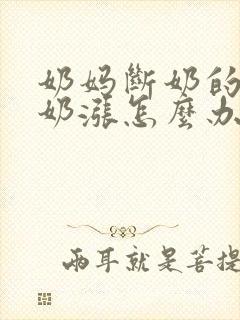 奶妈斷奶的
奶漲怎麼办
兩耳就是菩提